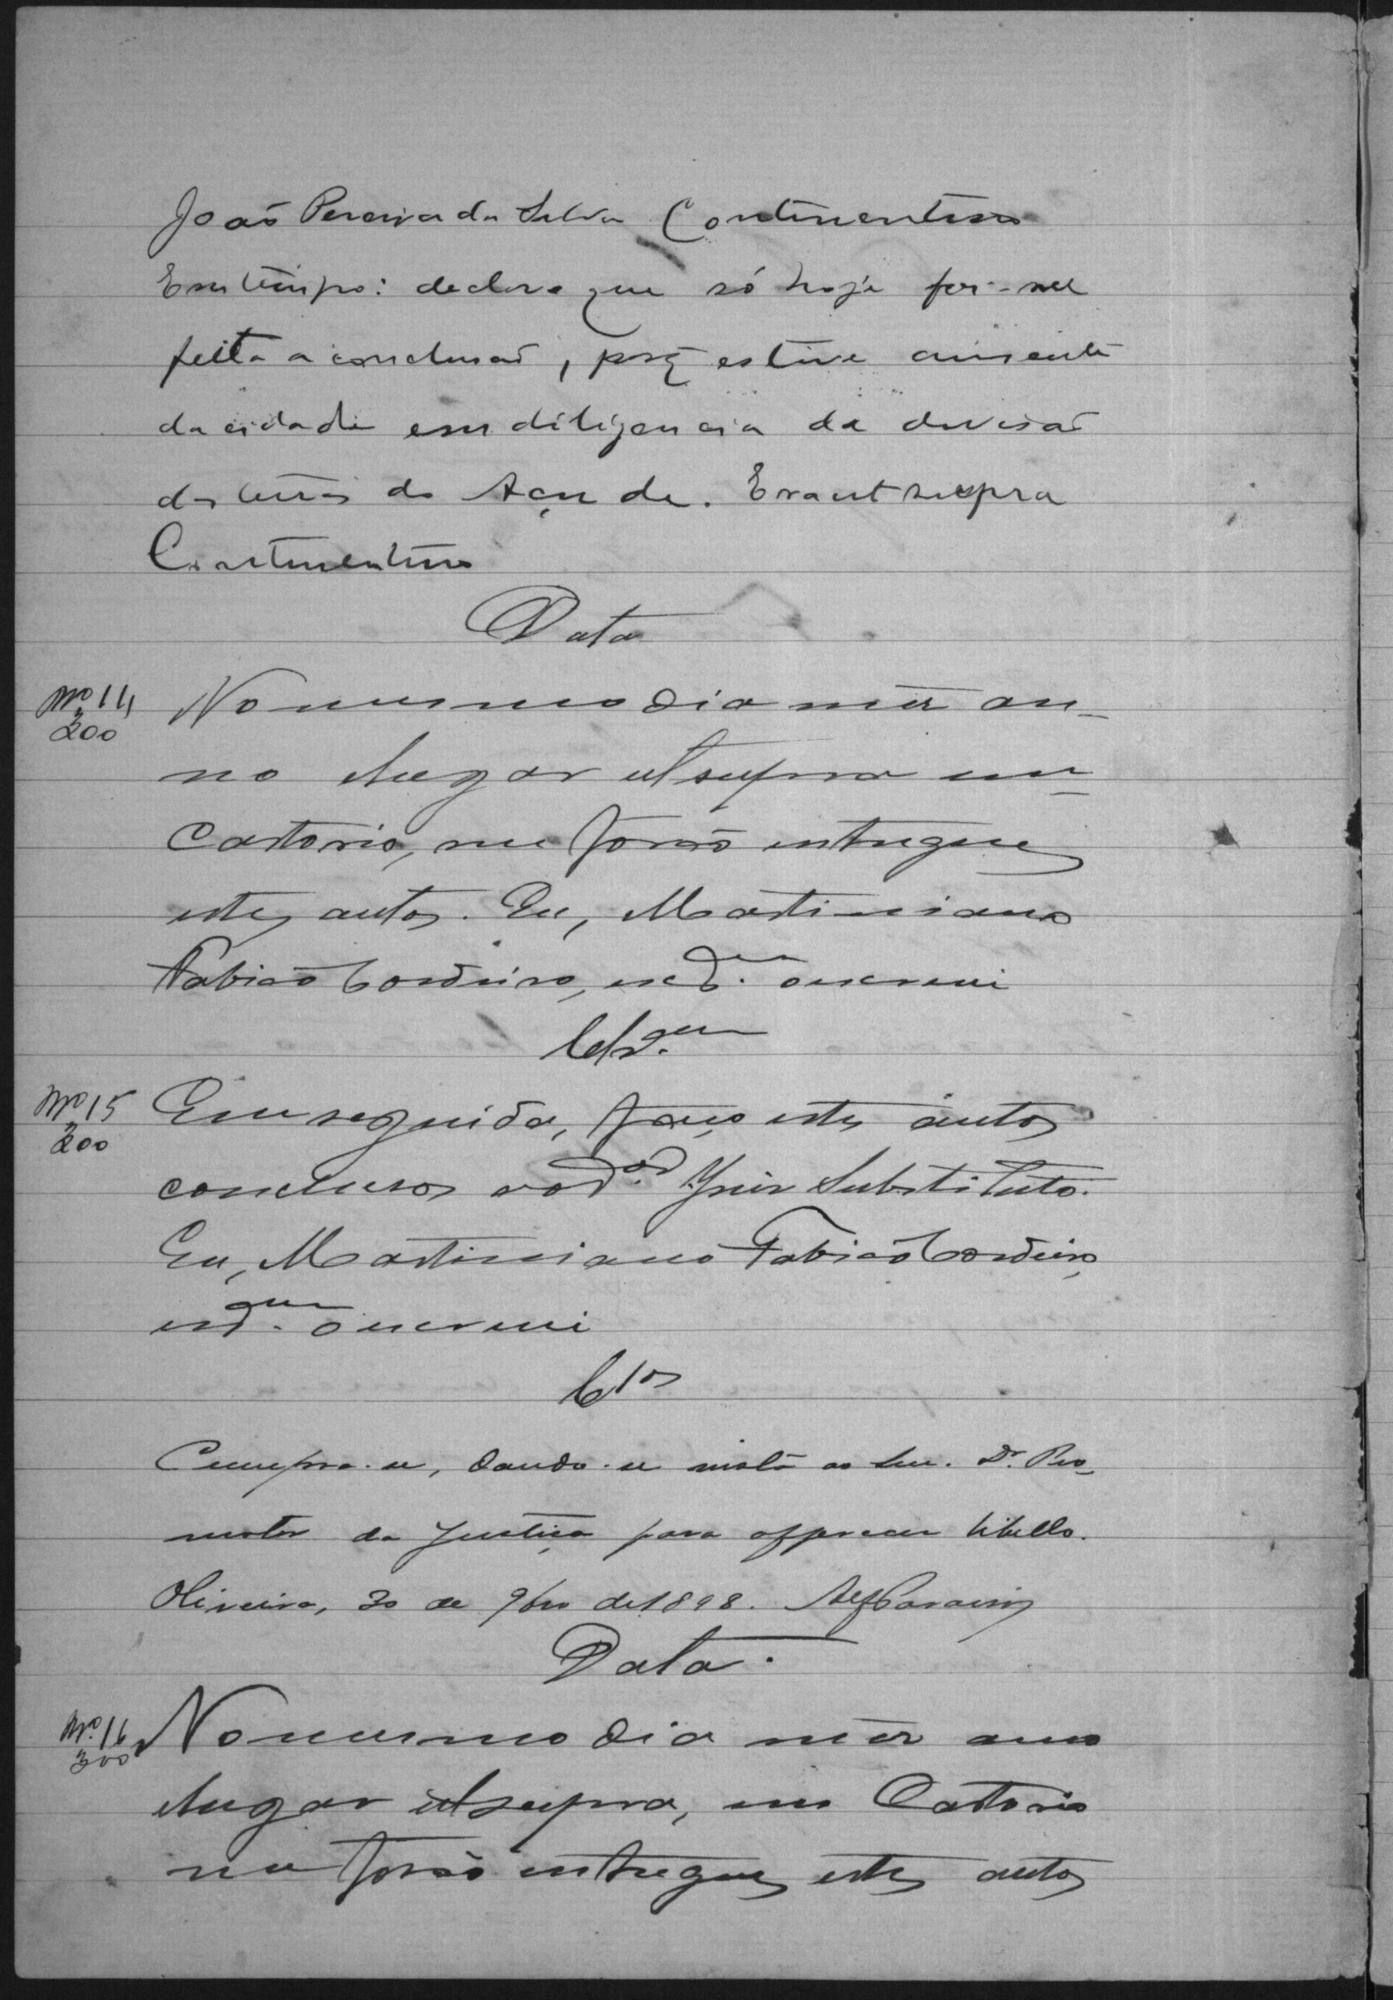 João Pereira da Silva Continentino
Em tempo: declaro que só hoje foi-me
feita a conclusaõ, porq̃ estive ausente
da cidade em diligencia da divisaõ
das terras do Açude. Era ut supra
Continentino
Data
Nº 14 No mesmo dia mez an-
200
no lugar ut supra em
Cartorio, me foraõ entregues
estes autos. Eu, Martiniano
Fabiaõ Cordeiro, escr.am o escrevi
Clsam
Nº 15 Em seguida, faço estes autos
200
conclusos ao d.or Juiz Substituto.
Eu, Martiniano Fabiaõ Cordeiro,
esc.am o escrevi
Clos
Cumpra-se, dando-se vista ao Snr. Dr. Pro-
motor da Justiça para offerecer libello.
Oliveira, 30 de 9bro de 1898.
Data.
Nº 16 No mesmo dia mez anno
200
lugar ut supra, em Cartorio
me foraõ entregues estes autos